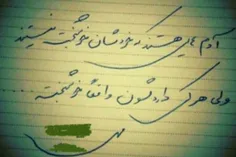 آدم هایی هستند که خودشان خوشبخت نیستند
ولی هر کی دارد‌شون واقعا خوشبخته ...